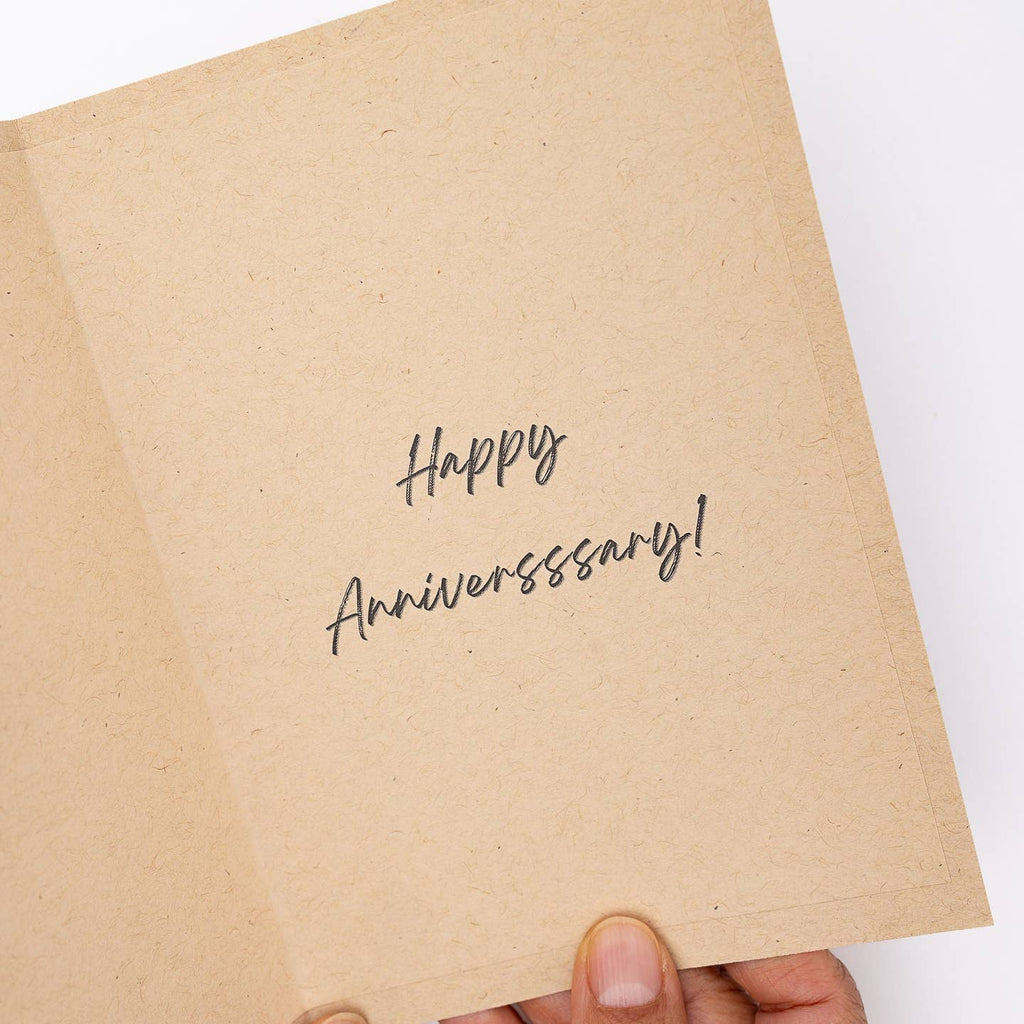 Happy
Anniversssary!